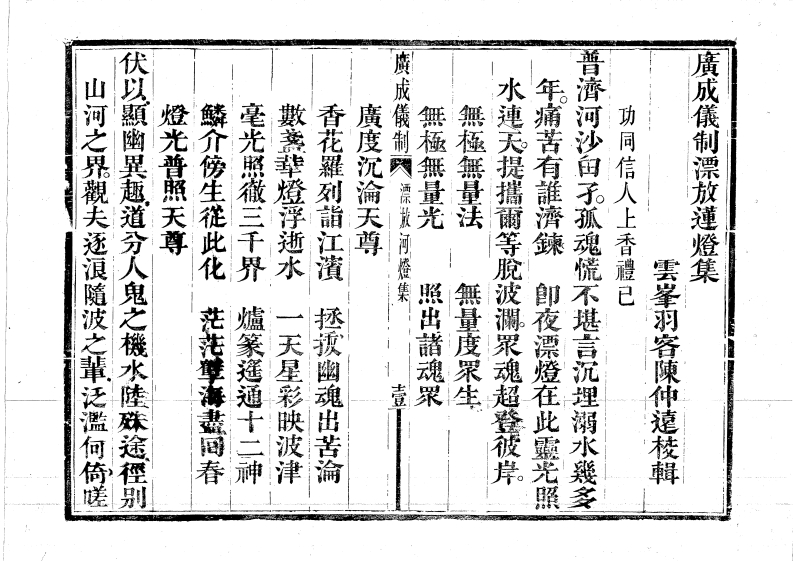 廣成儀制漂放蓮燈集
雲峯羽客陳仲遠校輯
功同信人上香禮已
普濟河沙甶孑。孤魂慌不堪言沉埋溺水幾多
年。痛苦有誰濟鍊　卽夜漂燈在此靈光照
水連天。提攜爾等脫波瀾。眾魂超登彼岸。
無極無量法　無量度眾生
無極無量光　照出諸魂眾
廣成儀制　漂放河燈集　壹
廣度沉淪天尊
香花羅列詣江濱　拯拔幽魂出苦淪
數盞華燈浮逝水　一天星彩映波津
毫光照徹三千界　爐篆遙通十二神
鱗介傍生從此化　茫茫孽海盡回春
燈光普照天尊
伏以顯幽異趣。道分人鬼之機水陸殊途。徑別
山河之界。觀夫逐浪隨波之輩。泛濫何倚。嗟